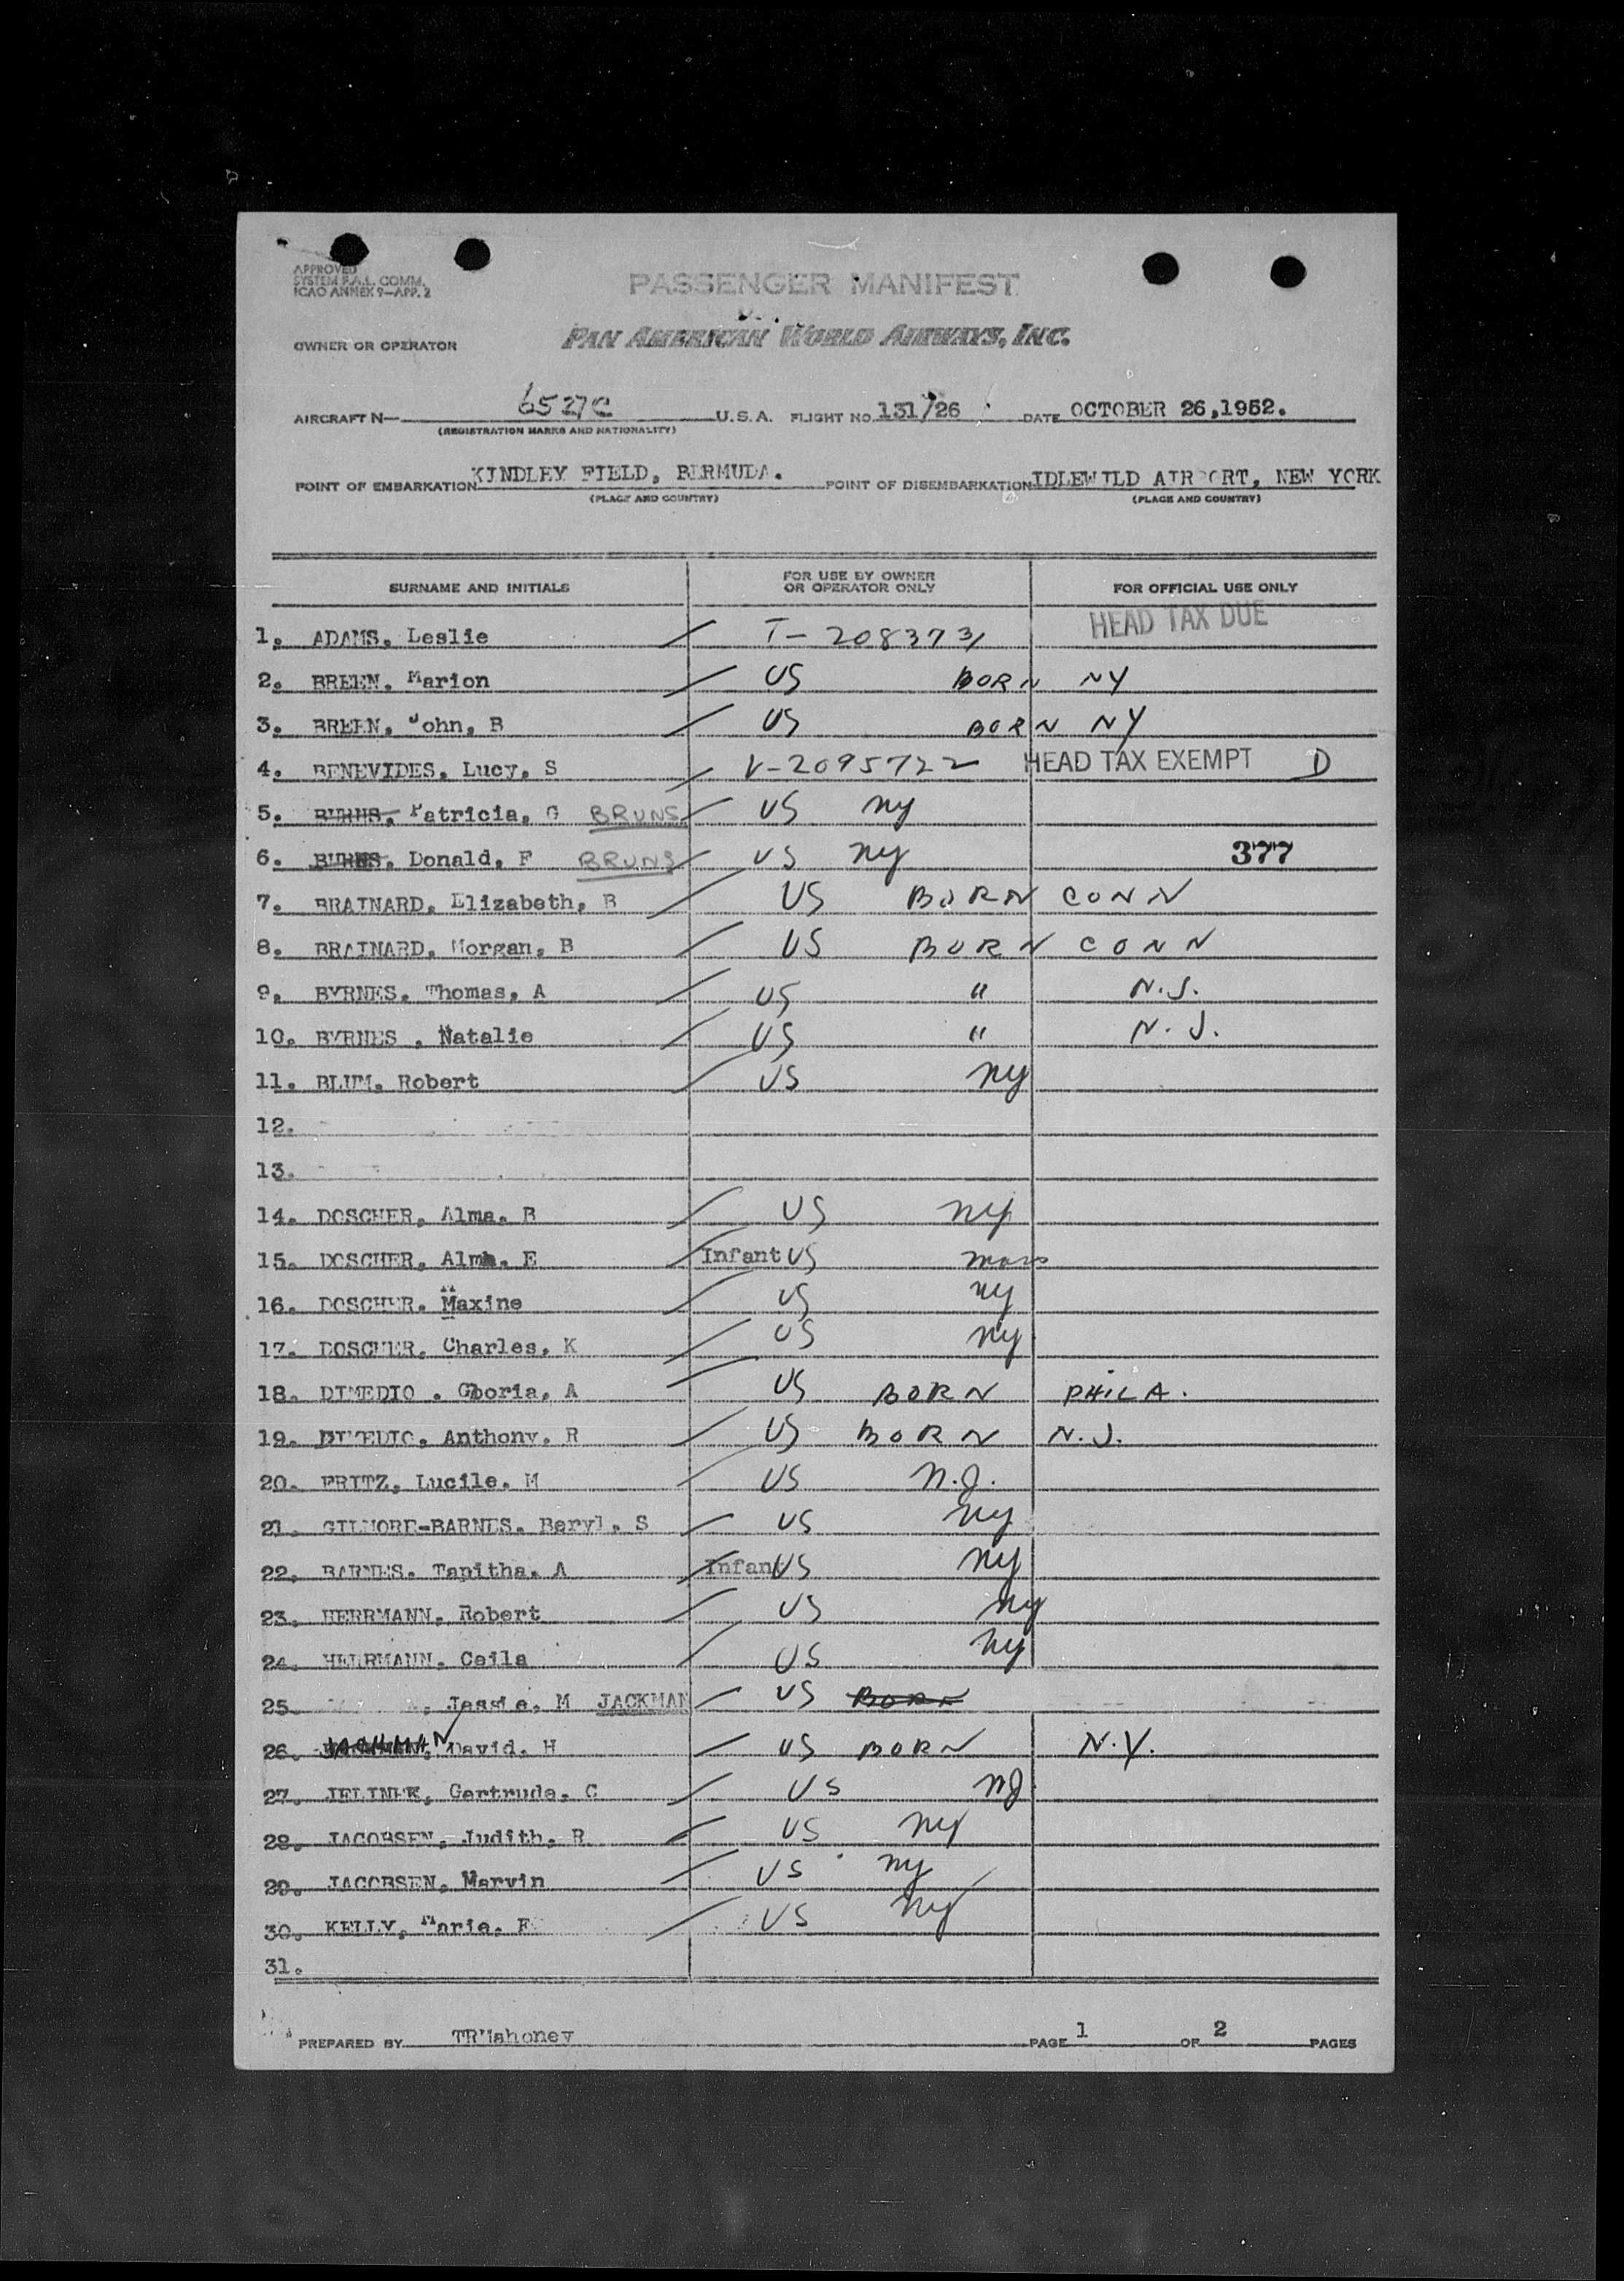 APPROVED
SYSTEM F.A.L. COMM.
ICAO ANNEX 9—APP. 2
PASSENGER MANIFEST
OWNER OR OPERATOR PAN AMERICAN WORLD AIRWAYS, INC.
AIRCRAFT N— 6527C U.S.A. FLIGHT NO. 131/26 DATE OCTOBER 26,1952.
(REGISTRATION MARKS AND NATIONALITY)
POINT OF EMBARKATION KINDLEY FIELD, BERMUDA. POINT OF DISEMBARKATION IDLEWILD AIRPORT, NEW YORK
(PLACE AND COUNTRY) (PLACE AND COUNTRY)
SURNAME AND INITIALS FOR USE BY OWNER OR OPERATOR ONLY FOR OFFICIAL USE ONLY
1. ADAMS, Leslie / T-2083731 HEAD TAX DUE
2. BREEN, Marion / US BORN NY
3. BREEN, John, B / US BORN NY
4. BENEVIDES, Lucy, S / V-2095722 HEAD TAX EXEMPT D
5. BURNS, Patricia, G BRUNS / US NY
6. BURNS, Donald, F BRUNS / US NY 377
7. BRAINARD, Elizabeth, B / US BORN CONN
8. BRAINARD, Morgan, B / US BORN CONN
9. BYRNES, Thomas, A / US " N.J.
10. BYRNES , Natalie / US " N.J.
11. BLUM, Robert / US NY
12.
13.
14. DOSCHER, Alma, B / US NY
15. DOSCHER, Alma, E / Infant US Mass
16. DOSCHER, Maxine / US NY
17. DOSCHER, Charles, K / US NY
18. DIMEDIO , Gloria, A / US BORN PHILA.
19. DIMEDIO, Anthony, R / US BORN N.J.
20. FRITZ, Lucile, M / US N.J.
21. GILMORE-BARNES, Beryl, S / US NY
22. BARNES, Tapitha, A / Infant US NY
23. HERRMANN, Robert / US NY
24. HERRMANN, Ceila / US NY
25. Jessie, M JACKMAN / US BORN
26. JACKMAN, David, H / US BORN N.Y.
27. JELINEK, Gertrude, C / US NJ
28. JACOBSEN, Judith, R / US NY
29. JACOBSEN, Marvin / US NY
30. KELLY, Marie, F / US NY
31.
PREPARED BY TRMahoney PAGE 1 OF 2 PAGES